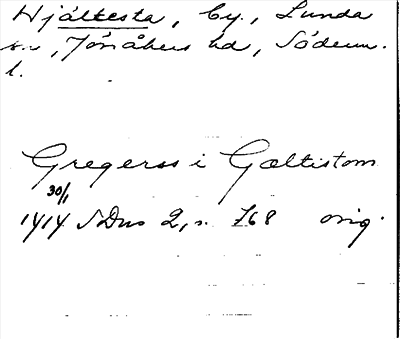 Hjältesta, by., Lunda
sn, Jönåkers hd, Söderm.
l.
Gregerss i Gæltistom
30/1
1414 SDns 2, s. 768 orig.